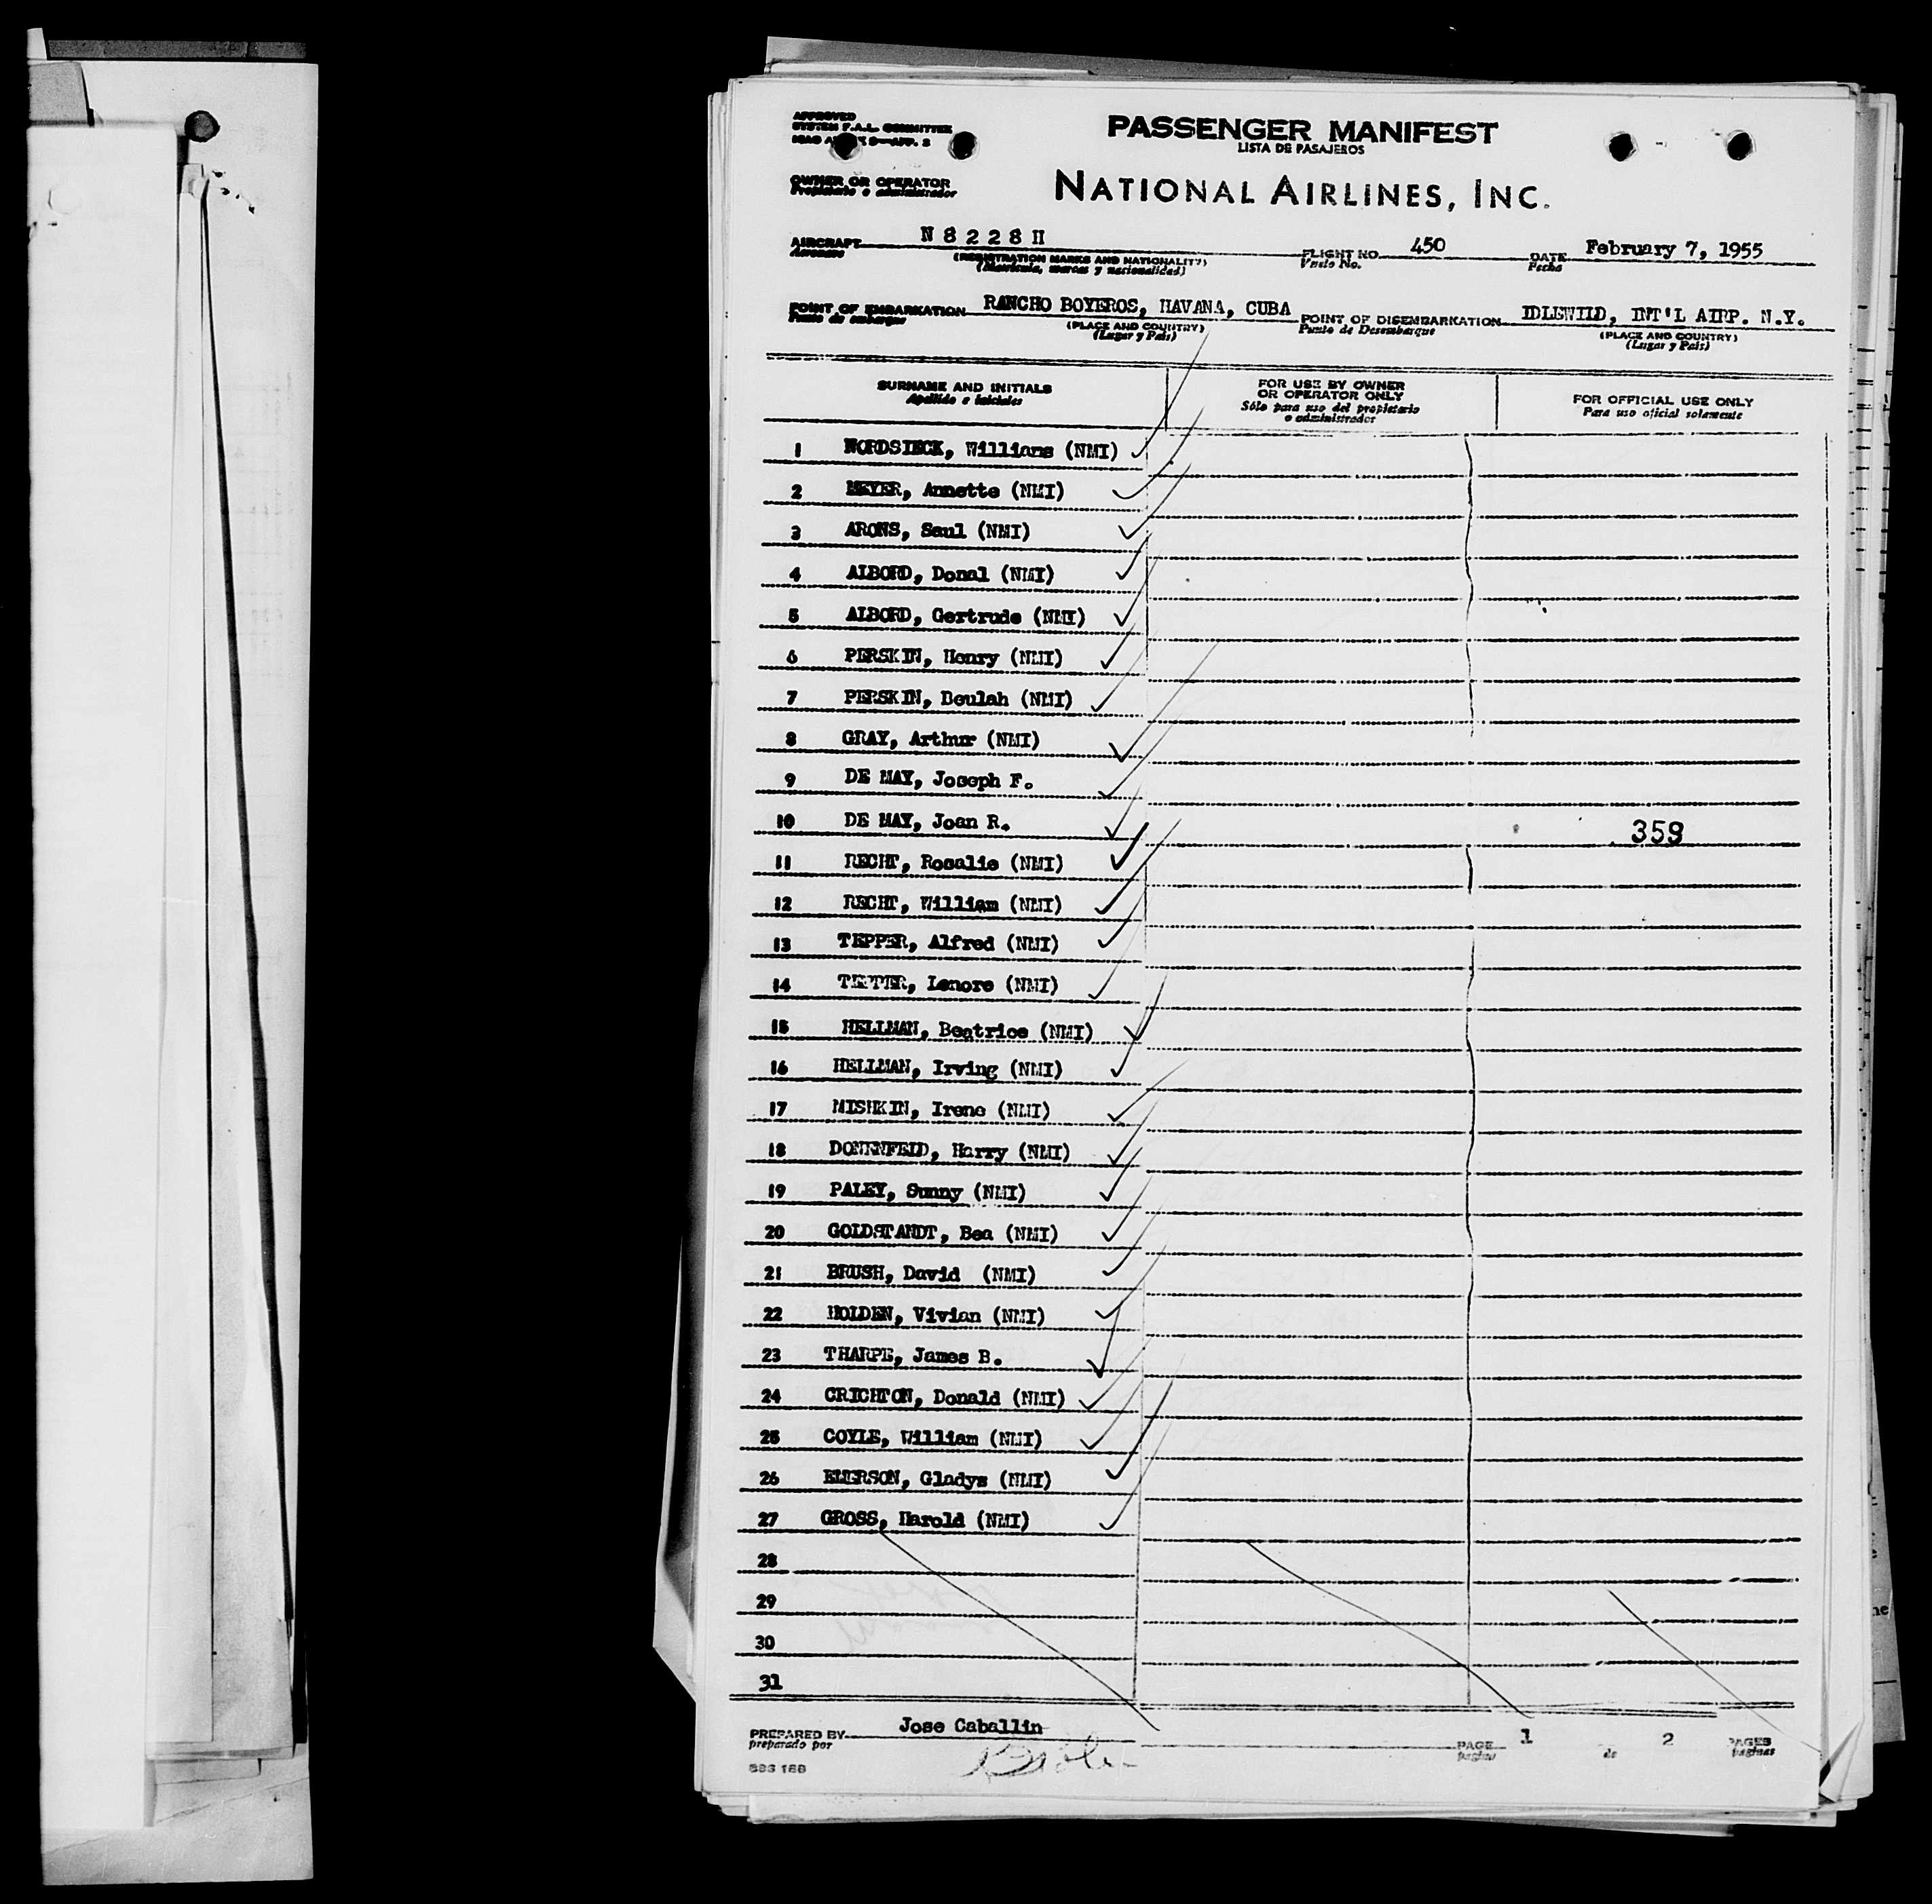 APPROVED
SYSTEM F.A.L. COMMITTEE
PASSENGER MANIFEST
LISTA DE PASAJEROS
OWNER OR OPERATOR
Propietario o administrador
NATIONAL AIRLINES, INC.
AIRCRAFT N 8 2 2 8 H FLIGHT NO. 450 DATE February 7, 1955
Aeronave (REGISTRATION MARKS AND NATIONALITY) Vuelo No. Fecha
(Matricula, marcas y nacionalidad)
POINT OF EMBARKATION RANCHO BOYEROS, HAVANA, CUBA POINT OF DISEMBARKATION IDLEWILD, INT'L AIRP. N.Y.
Punto de embarque (PLACE AND COUNTRY) Punto de Desembarque (PLACE AND COUNTRY)
(Lugar y Pais) (Lugar y Pais)
SURNAME AND INITIALS FOR USE BY OWNER OR OPERATOR ONLY FOR OFFICIAL USE ONLY
Apellido e iniciales Sólo para uso del propietario o administrador Para uso oficial solamente
1 NORDSIECK, Williams (NMI)
2 MEYER, Annette (NMI)
3 ARONS, Saul (NMI)
4 ALBORD, Donal (NMI)
5 ALBORD, Gertrude (NMI)
6 PERSKIN, Henry (NMI)
7 PERSKIN, Beulah (NMI)
8 GRAY, Arthur (NMI)
9 DE MAY, Joseph F.
10 DE MAY, Joan R. 359
11 RECHT, Rosalie (NMI)
12 RECHT, William (NMI)
13 TEPPER, Alfred (NMI)
14 TEPPER, Lenore (NMI)
15 HELLMAN, Beatrice (NMI)
16 HELLMAN, Irving (NMI)
17 MISHKIN, Irene (NMI)
18 DONENFELD, Harry (NMI)
19 PALEY, Sunny (NMI)
20 GOLDSTANDT, Bea (NMI)
21 BRUSH, David (NMI)
22 HOLDEN, Vivian (NMI)
23 THARPE, James B.
24 CRICHTON, Donald (NMI)
25 COYLE, William (NMI)
26 EMERSON, Gladys (NMI)
27 GROSS, Harold (NMI)
28
29
30
31
PREPARED BY Jose Caballin PAGE 1 2 PAGES
preparado por pagina de paginas